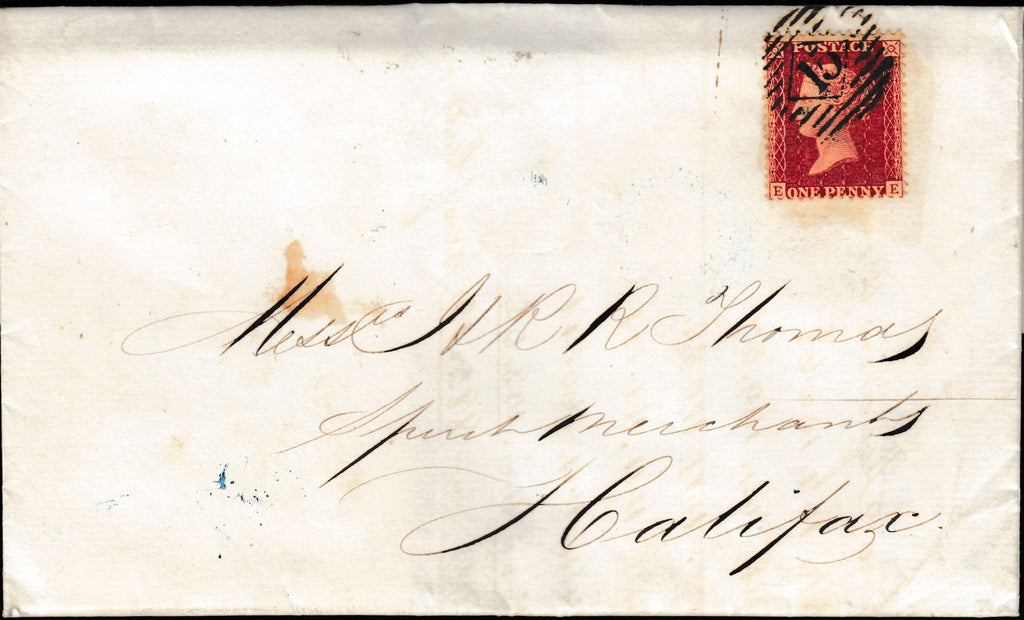 POSTAGE
15
E ONE PENNY E
Messrs J & R R Thomas
Spirit Merchants
Halifax